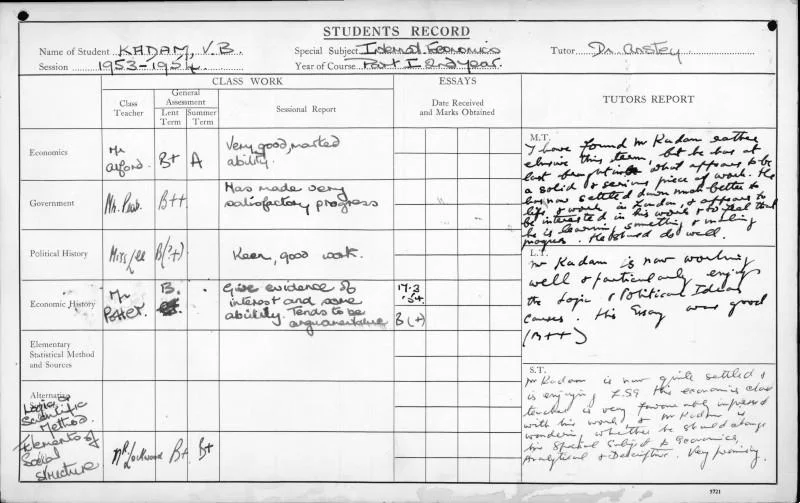 STUDENTS RECORD
Name of Student KADAM, V.B. Special Subject Internat. Economics Tutor Dr Anstey
Session 1953-1954 Year of Course Part I 2nd year.
CLASS WORK ESSAYS TUTORS REPORT
Class Teacher General Assessment Lent Term Summer Term Sessional Report Date Received and Marks Obtained
Economics Mr Alford. B+ A Very good, marked
ability.
Government Mr. B++ Has made very
satisfactory progress
Political History Miss Lee B(?+) Keen, good work.
Economic History Mr Potter. B. Give evidence of
interest and some
ability. Tends to be
argumentative
17.3
'54.
B(+)
Elementary
Statistical Method
and Sources
Alternative
Logic &
Scientific
Method.
Elements of
Social
Structure Mr Lockwood B+ B+
M.T.
I have found Mr Kadam rather
elusive this term, but he has at
last brought in what appears to be
a solid & serious piece of work. He
has now settled down much better to
life & work in London, & appears to
be interested in his work & to feel that
he is learning something & making
progress. He should do well.
L.T.
Mr Kadam is now working
well & particularly enjoys
the Logic & Political Ideas
courses. His Essay was good
(B++)
S.T.
Mr Kadam is now quite settled &
is enjoying LSE. His economics class
teacher is very favourably impressed
with his work & Mr Kadam is
wondering whether he should change
his Special Subject to Economics,
Analytical & Descriptive. Very promising.
5721